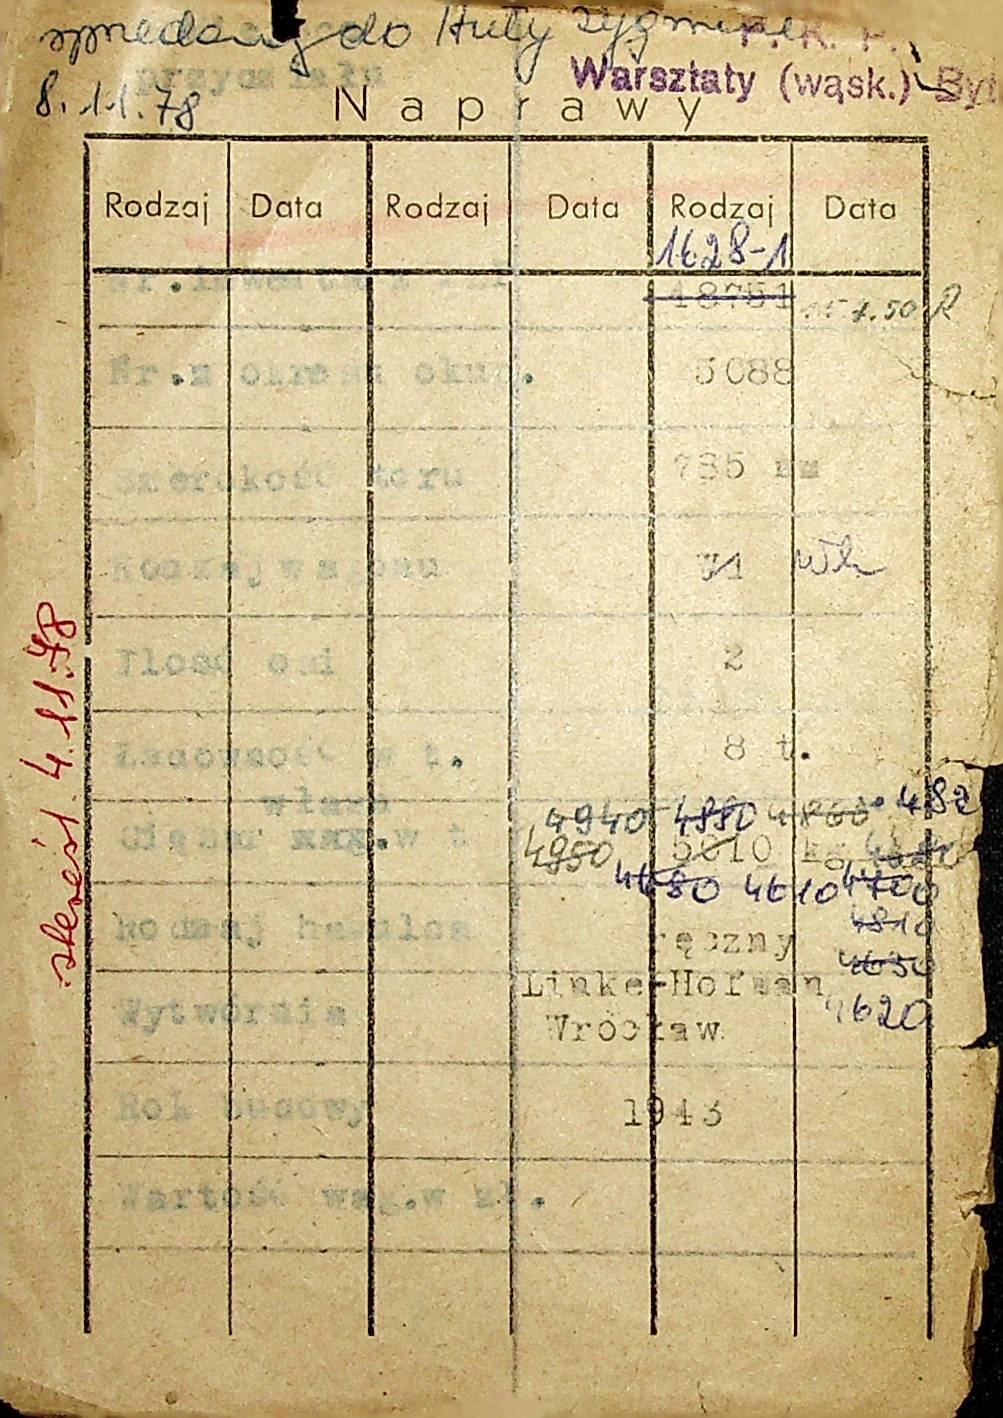 sprzedany do Huty Zygmunt
P. K. P.
przydziału
Warsztaty (wąsk.) Byt
8.11.78
Naprawy
Rodzaj Data Rodzaj Data Rodzaj Data
1628-1
18751 7.50 R
Nr.z okresu okup. 5088
Szerokość toru 785 mm
Rodzaj wagonu Wh
Ilość osi 2
Ładowność w t. 8 t.
własn
4940 4880 4860 482
Ciężar wag.w t 4950 5010 kg
4680 4610 4700
4810
Rodzaj hamulca ręczny
4650
Linke-Hofman
Wytwórnia Wrocław
4620
Rok budowy 1943
Wartość wag.w zł.
skreśl. 4.11.78